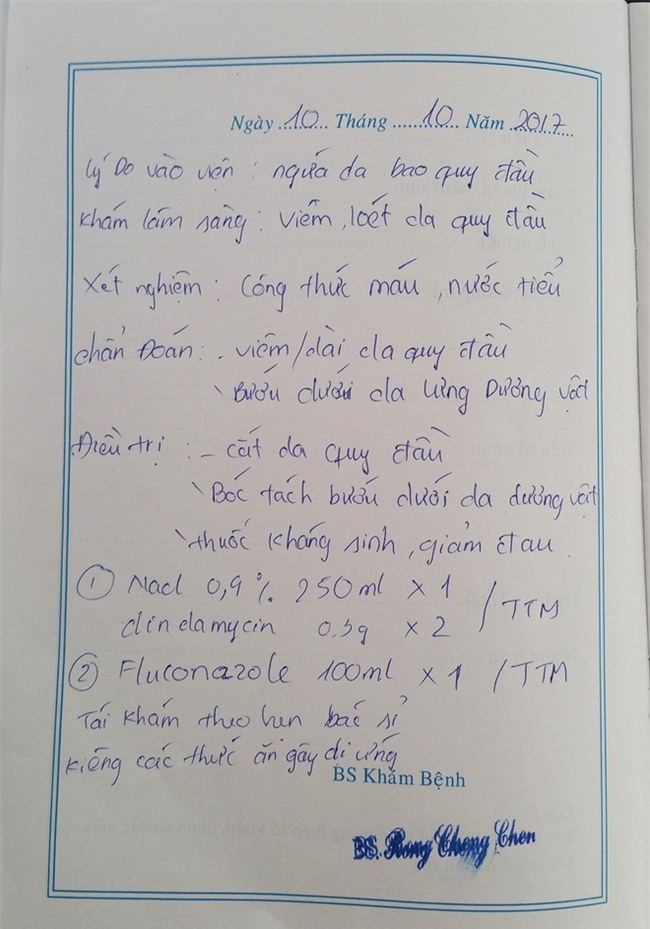 Ngày 10 Tháng 10 Năm 2017
Lý Do vào viện : ngứa da bao quy đầu
Khám lâm sàng : viêm, loét da quy đầu
Xét nghiệm : Công thức máu, nước tiểu
chẩn Đoán : - viêm/dài da quy đầu
Bướu dưới da Dương vật
Điều trị : - cắt da quy đầu
Bóc tách bướu dưới da dương vật
thuốc kháng sinh, giảm đau.
① Nacl 0,9% 250ml x 1 / TTM
clindamycin 0.3g x 2
② Fluconazole 100ml x 1 / TTM
Tái khám theo hẹn bác sĩ
Kiêng các thức ăn gây dị ứng
BS Khám Bệnh
BS. Chong Chen